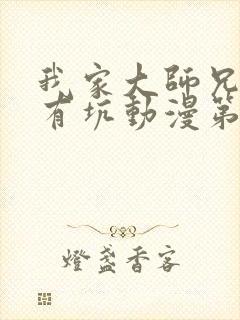 我家大師兄
有坑動漫第
燈盞香客